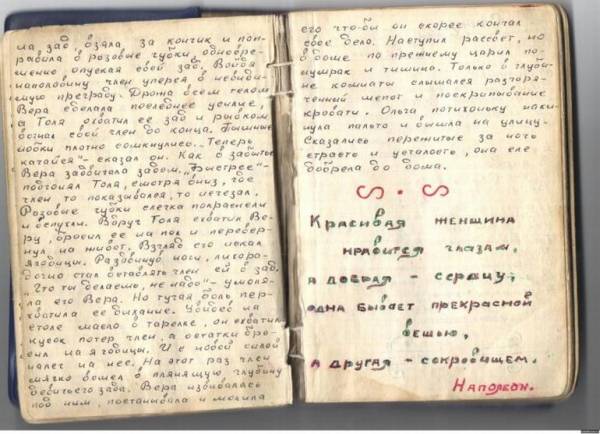 ла, зад, взяла, за кончик и нап-
равила в розовые губки, одновре-
менно опуская свой зад. Войдя
наполовину член уперся в невиди-
мую преграду. Дрожа всем телом
Вера сделала последнее усилие,
а Толя схватил ее зад и рывком
вогнал свой член до конца. Пышные
губки плотно сомкнулись. "Теперь
катайся" - сказал он. Как в забытье
Вера задвигала задом. "Быстрее" -
подгонял Толя, смотря вниз, где
член то показывался, то исчезал.
Розовые губки слегка покраснели
и вспухли. Вдруг Толя схватил Ве-
ру, бросил ее на пол и перевер-
нул на живот. Взгляд его искал
ягодицы. Раздвинув ноги, лихора-
дочно стал вставлять член ей в зад.
"Что ты делаешь, не надо" - умоля-
ла его Вера. Но тугая боль пер-
хватила ее дыхание. Увидев на
столе масло в тарелке, он схватил
кусок потер член, а остатки бро-
сил на ягодицы. И с новой силой
налег на нее. На этот раз член
мягко вошел в манящую глубину
девичьего зада. Вера извивалась
под ним, постанывала и молила
его что-бы он скорее кончал
свое дело. Наступил рассвет, но
в доме по прежнему царил по-
лумрак и тишина. Только в глуби-
не комнаты слышался разгоря-
ченный шепот и поскрипывание
кровати. Ольга, потихоньку наки-
нула пальто и вышла на улицу.
Сказались пережитые за ночь
страсть и усталость, она еле
добрела до дома.
Красивая женщина
нравится глазам,
а добрая - сердцу;
одна бывает прекрасной
вещью,
а другая - сокровищем.
Наполеон.